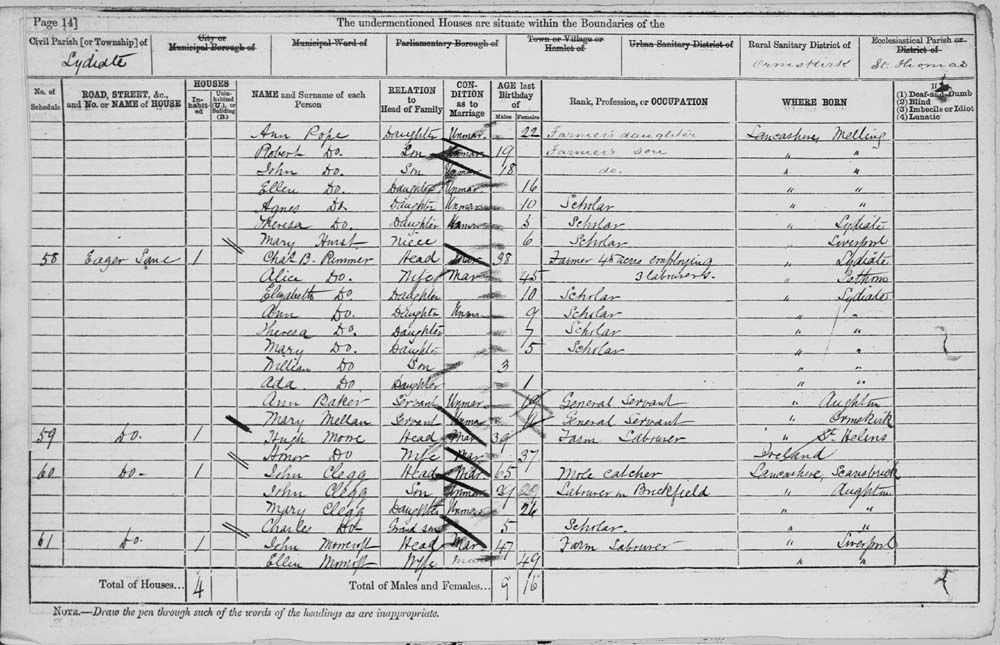 Page 14] The undermentioned Houses are situate within the Boundaries of the
Civil Parish [or Township] of City or Municipal Borough of Municipal Ward of Parliamentary Borough of Town or Village or Hamlet of Urban Sanitary District of Rural Sanitary District of Ecclesiastical Parish or District of
Lydiate Ormskirk St. Thomas
No. of Schedule ROAD, STREET, &c., and No. or NAME of HOUSE HOUSES Inhabited Uninhabited (U.), or Building (B.) NAME and Surname of each Person RELATION to Head of Family CONDITION as to Marriage AGE last Birthday of Males Females Rank, Profession, or OCCUPATION WHERE BORN If (1) Deaf-and-Dumb (2) Blind (3) Imbecile or Idiot (4) Lunatic
Ann Pope Daughter Unmar. 22 Farmer's daughter Lancashire, Melling
Robert Do. Son Unmar 19 Farmer's son " "
John Do. Son Unmar 18 do. " "
Ellen Do. Daughter Unmar. 16 " "
Agnes Do. Daughter Unmar 10 Scholar " "
Theresa Do. Daughter Unmar 5 Scholar " Lydiate
Mary Hurst Niece 6 Scholar Liverpool
58 Eager Lane 1 Chas B. Rimmer Head Mar 38 Farmer 45 acres employing " Lydiate
Alice Do. Wife Mar 45 3 labourers. "
Elizabeth Do Daughter 10 Scholar " Lydiate
Ann Do. Daughter Unmar 9 Scholar " "
Theresa Do. Daughter 7 Scholar " "
Mary Do. Daughter 5 Scholar " "
William Do Son 3 " "
Ada Do. Daughter 1 " "
Ann Baker Servant Unmar General Servant " Aughton
Mary Mellan Servant Unmar General Servant " Ormskirk
59 Do. 1 Hugh Moore Head Mar 39 Farm Labourer " St. Helens
Honor Do Wife Mar 37 Ireland
60 Do- 1 John Clegg Head Mar 65 Mole catcher Lancashire, Scarisbrick
John Clegg Son Unmar Labourer in Brickfield " Aughton
Mary Clegg Daughter Unmar 26 " "
Charles Do. Grand son 5 Scholar. " "
61 Do. 1 John Moorcroft Head Mar 47 Farm Labourer " Liverpool
Ellen Moorcroft Wife Mar 49 " "
Total of Houses... 4 Total of Males and Females... 9 16
NOTE.—Draw the pen through such of the words of the headings as are inappropriate.